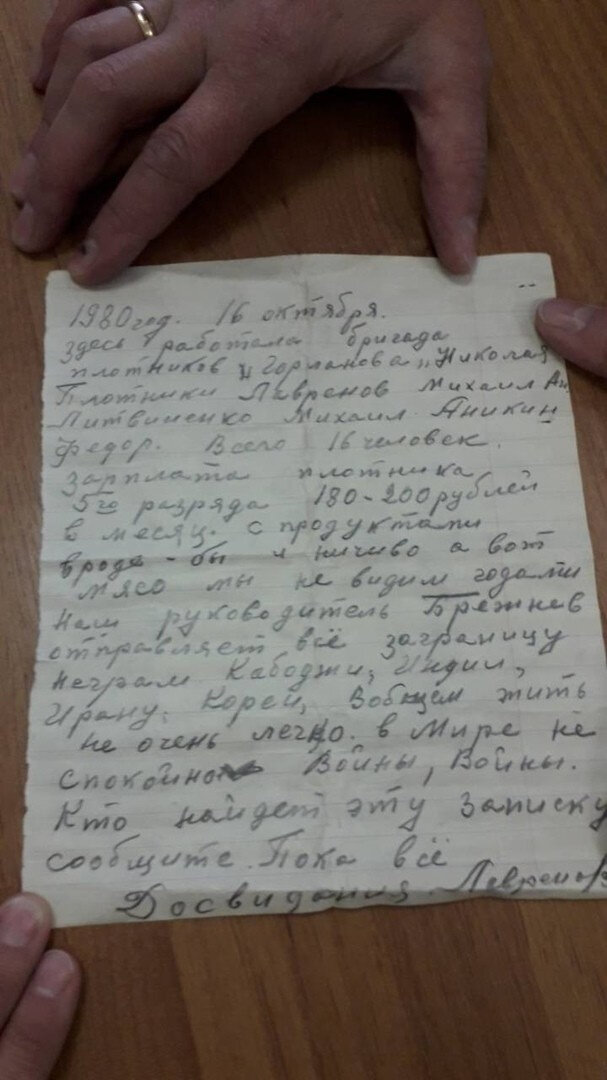 1980 год. 16 октября.
здесь работала бригада
плотников "Горланова" Николая
Плотники Лавренов Михаил Ан.
Литвиненко Михаил. Аникин
Федор. Всего 16 человек.
Зарплата плотника
5го разряда 180-200 рублей
в месяц. с продуктами
вроде-бы и ничиво а вот
мясо мы не видим годами
наш руководитель Брежнев
отправляет всё заграницу
неграм Кабоджи, Индии,
Ирану. Кореи, Вобщем жить
не очень легко. в Мире не
спокойно Войны, Войны.
Кто найдет эту Записку
сообщите. Пока всё
Досвидания. Лавренов